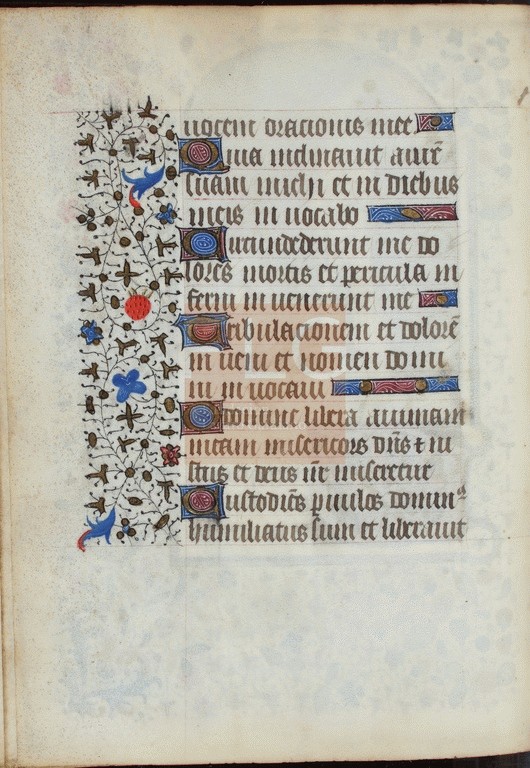 uocem oracionis mee
Quia inclinauit aurē
suam michi et in diebus
meis in uocabo
Circumdederunt me do
lores mortis et pericula in
ferni in uenerunt me
Tribulacionem et dolorē
in ueni et nomen domi
ni in uocaui
O domine libera animam
meam misericors dn̄s et iu
stus et deus nr̄ miseretur
Custodiēs paruulos domin⁹
humiliatus sum et liberauit